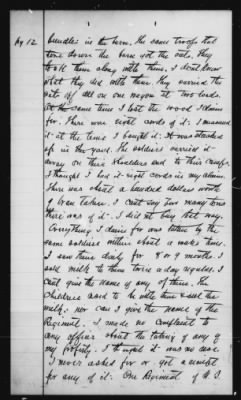 Ay 12
bundles in the barn. The same troops that
tore down the barn got the oats. They
took them along with them. I dont know
what they did with them. They carried the
oats off all on one wagon at two loads.
At the same time I lost the wood I claim
for. There was eight cords of it. I measured
it at the time I bought it. It was stacked
up in the yard. The soldiers carried it
away on their shoulders and to their camps.
I thought I had it eight cords in my claim.
There was about a hundred dollars worth
taken. I cant say how many tons
there was of it. I did not buy that way.
Everything I claim for was taken by the
same soldiers within about a months time.
I saw them daily for 8 or 9 months. I
sold milk to them twice a day regular. I
cant give the name of any of them. The
Childrens used to be with them & sell the
milk, nor can I give the name of the
Regiment. I made no complaint to
any officer about the taking of any of
my property. I thought it was no use.
I never asked for or got a receipt
for any of it. One Regiment of U.S.